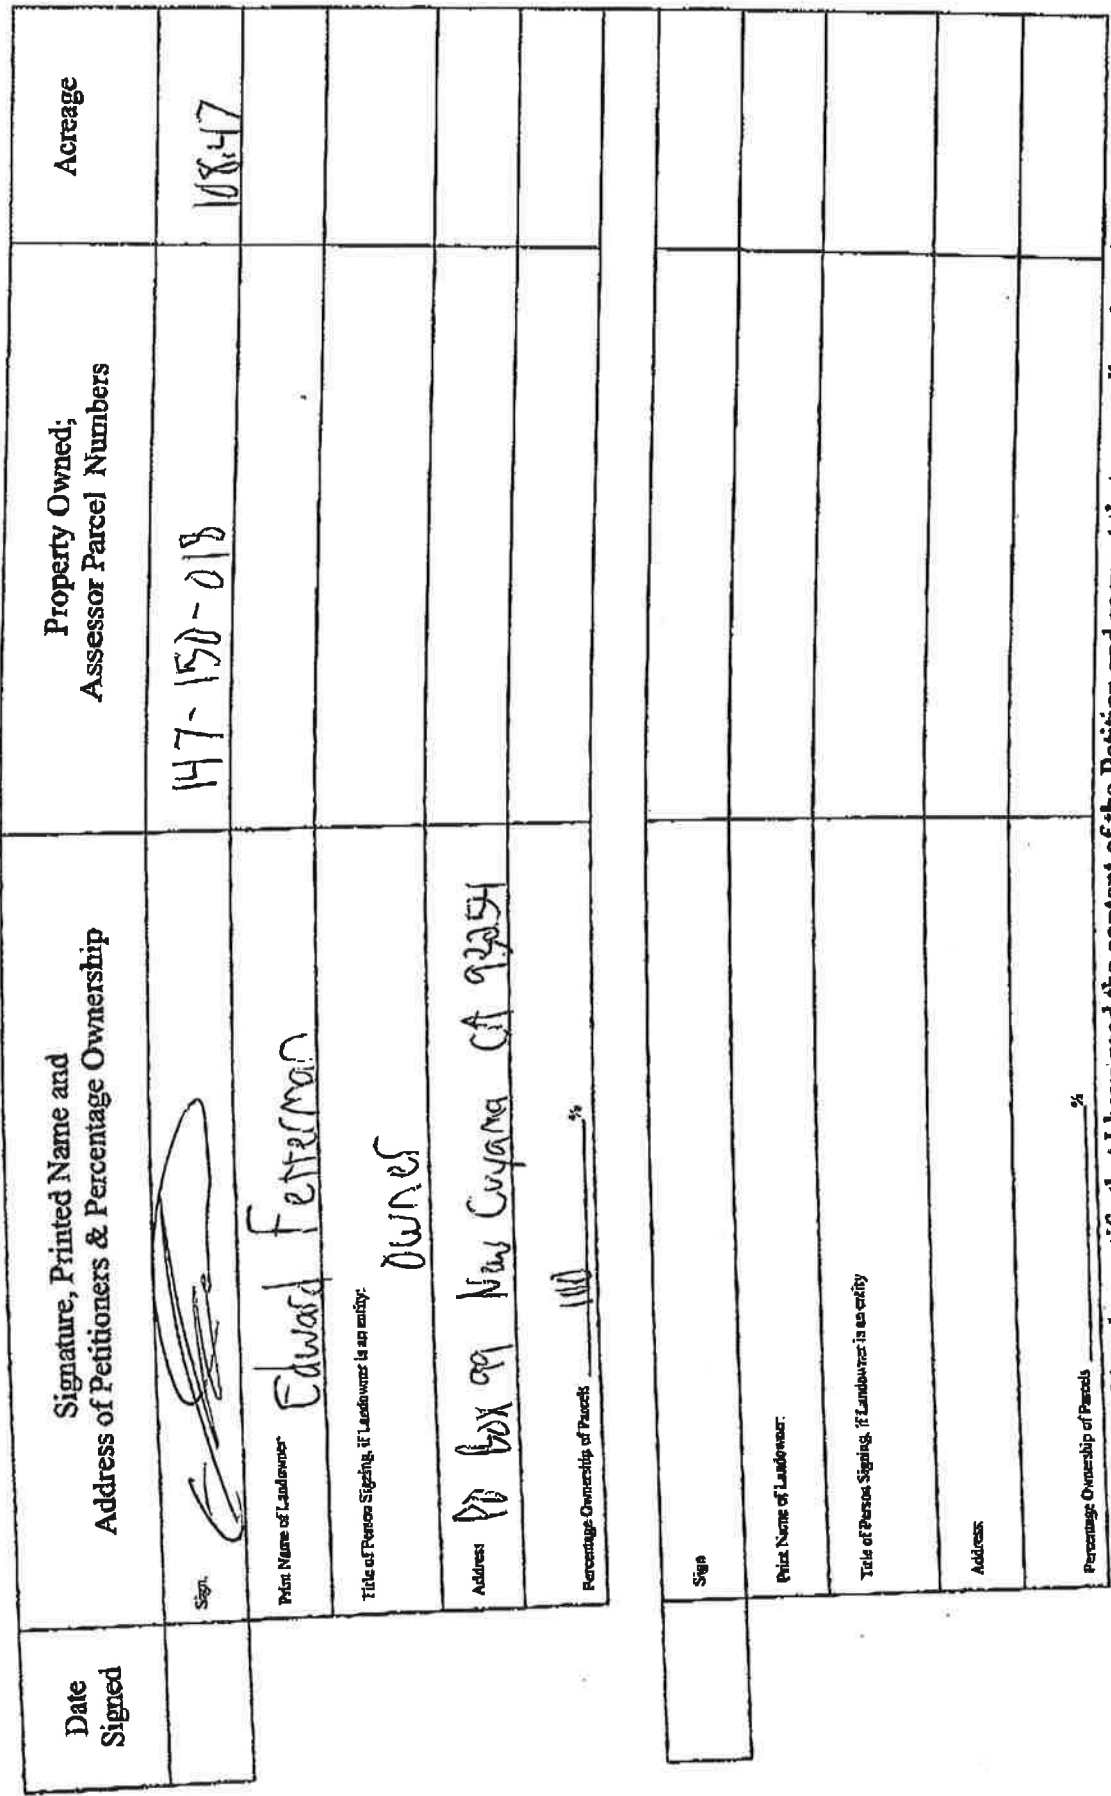 Date
Signed
Signature, Printed Name and
Address of Petitioners & Percentage Ownership
Property Owned;
Assessor Parcel Numbers
Acreage
Sign.
147-150-018
108.47
Print Name of Landowner Edward Fetterman
Title of Person Signing, if Landowner is an entity:
owner
Address PO Box 99 New Cuyama CA 93254
Percentage Ownership of Parcels %
Sign
Print Name of Landowner:
Title of Person Signing, if Landowner is an entity
Address:
Percentage Ownership of Parcels %
the content of the Petition and